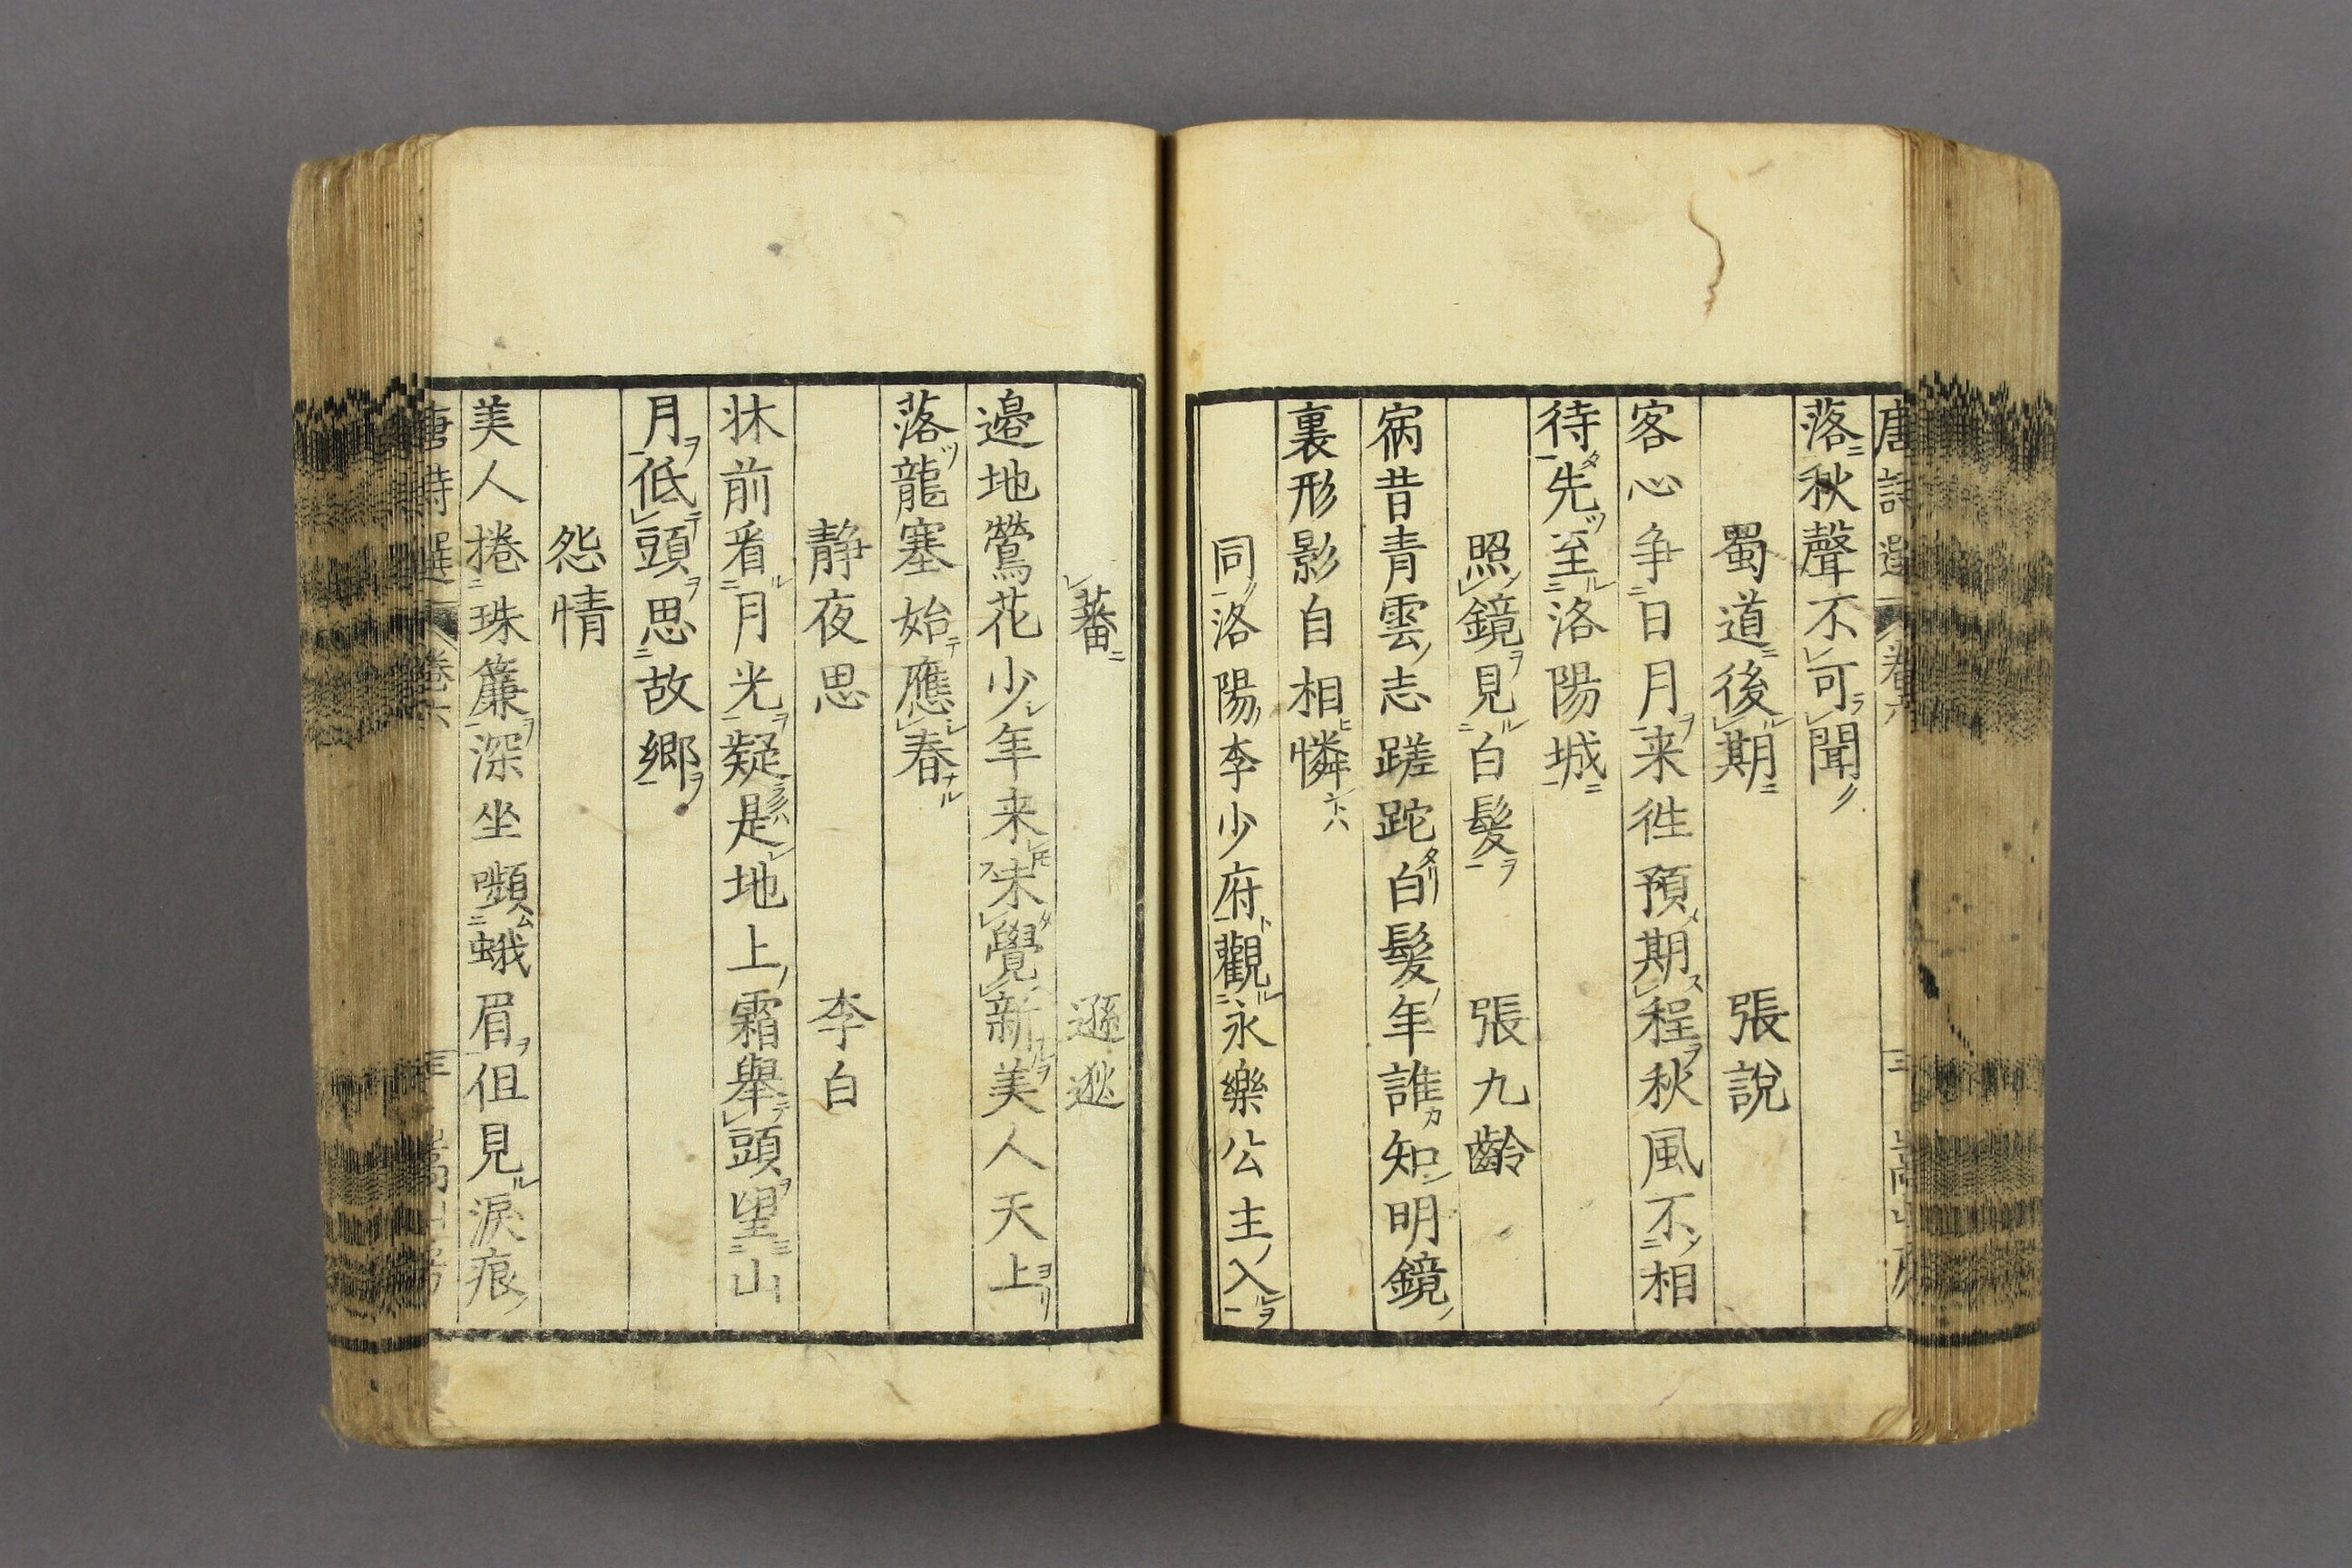 唐詩選 卷六 三
落秋聲不可聞
蜀道後期 張說
客心争日月来徃預期程秋風不相
待先至洛陽城
照鏡見白髮 張九齡
宿昔青雲志蹉跎白髮年誰知明鏡
裏形影自相憐
同洛陽李少府觀永樂公主入
蕃 孫逖
邉地鶯花少年来未覺新美人天上
落龍塞始應春
靜夜思 李白
牀前看月光疑是地上霜舉頭望山
月低頭思故鄉
怨情
美人捲珠簾深坐嚬蛾眉但見淚痕
唐詩選 卷六 三 嵩山房